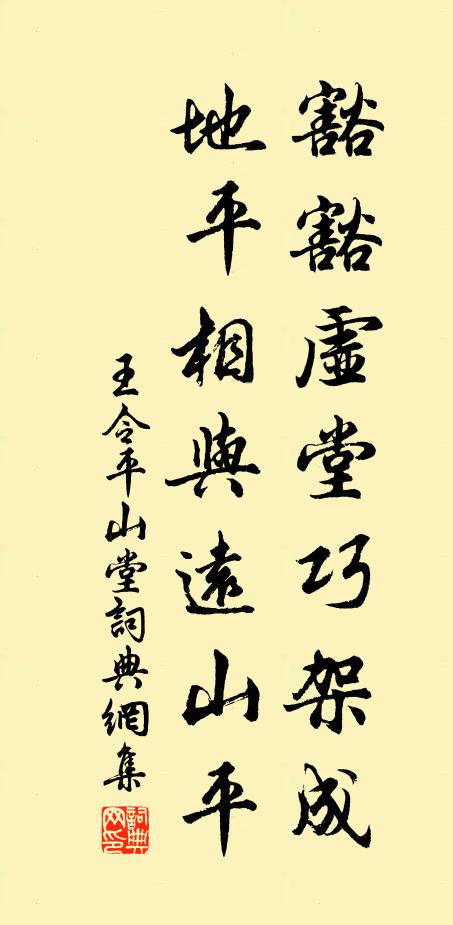 豁豁虛堂巧架成
地平相與遠山平
王令平山堂詞典網集
詞典網印